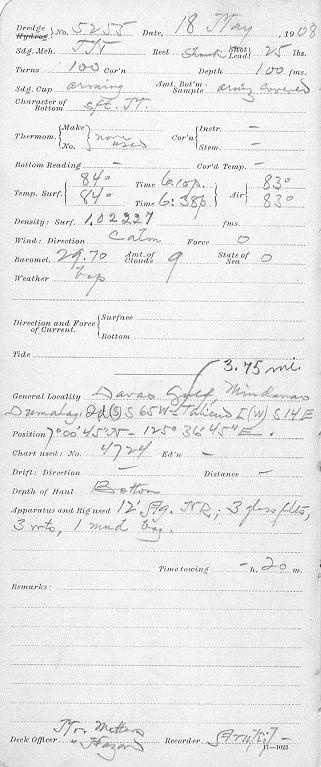 Dredge } No. 5255 Date, 18 May, 1908
Hydrog.
Sdg. Mch. TN Reel Shank Shot Lead 25 lbs.
Turns 100 Cor'n Depth 100 fms.
Sdg. Cup arming Amt. Bot'm Sample army covered
Character of Bottom sft. M.
Thermom. { Make No. } none used Cor'n { Instr. —
Stem. —
Bottom Reading — Cor'd Temp. —
Temp. Surf. { 84° Time 6:18p. } Air { 83°
84° Time 6:38p 83°
Density: Surf. 1.02227 fms.
Wind: Direction Calm Force 0
Baromet. 29.70 Amt. of Clouds 9 State of Sea 0
Weather bcp
Direction and Force of Current. { Surface
Bottom
Tide
3.75 mi.
General Locality Davao Gulf, Mindanao
Dumalag 2d (S) S 65 W - Linao I (W) S 14 E
Position 7° 00' 45" N - 125° 36' 45" E.
Chart used: No. 4724 Ed'n —
Drift: Direction — Distance —
Depth of Haul Bottom
Apparatus and Rig used 12' Ag. NR; 3 glass flts,
3 wts, 1 mud bag.
Time towing - h. 20 m.
Remarks:
Mr.
Deck Officer Recorder
11—1023